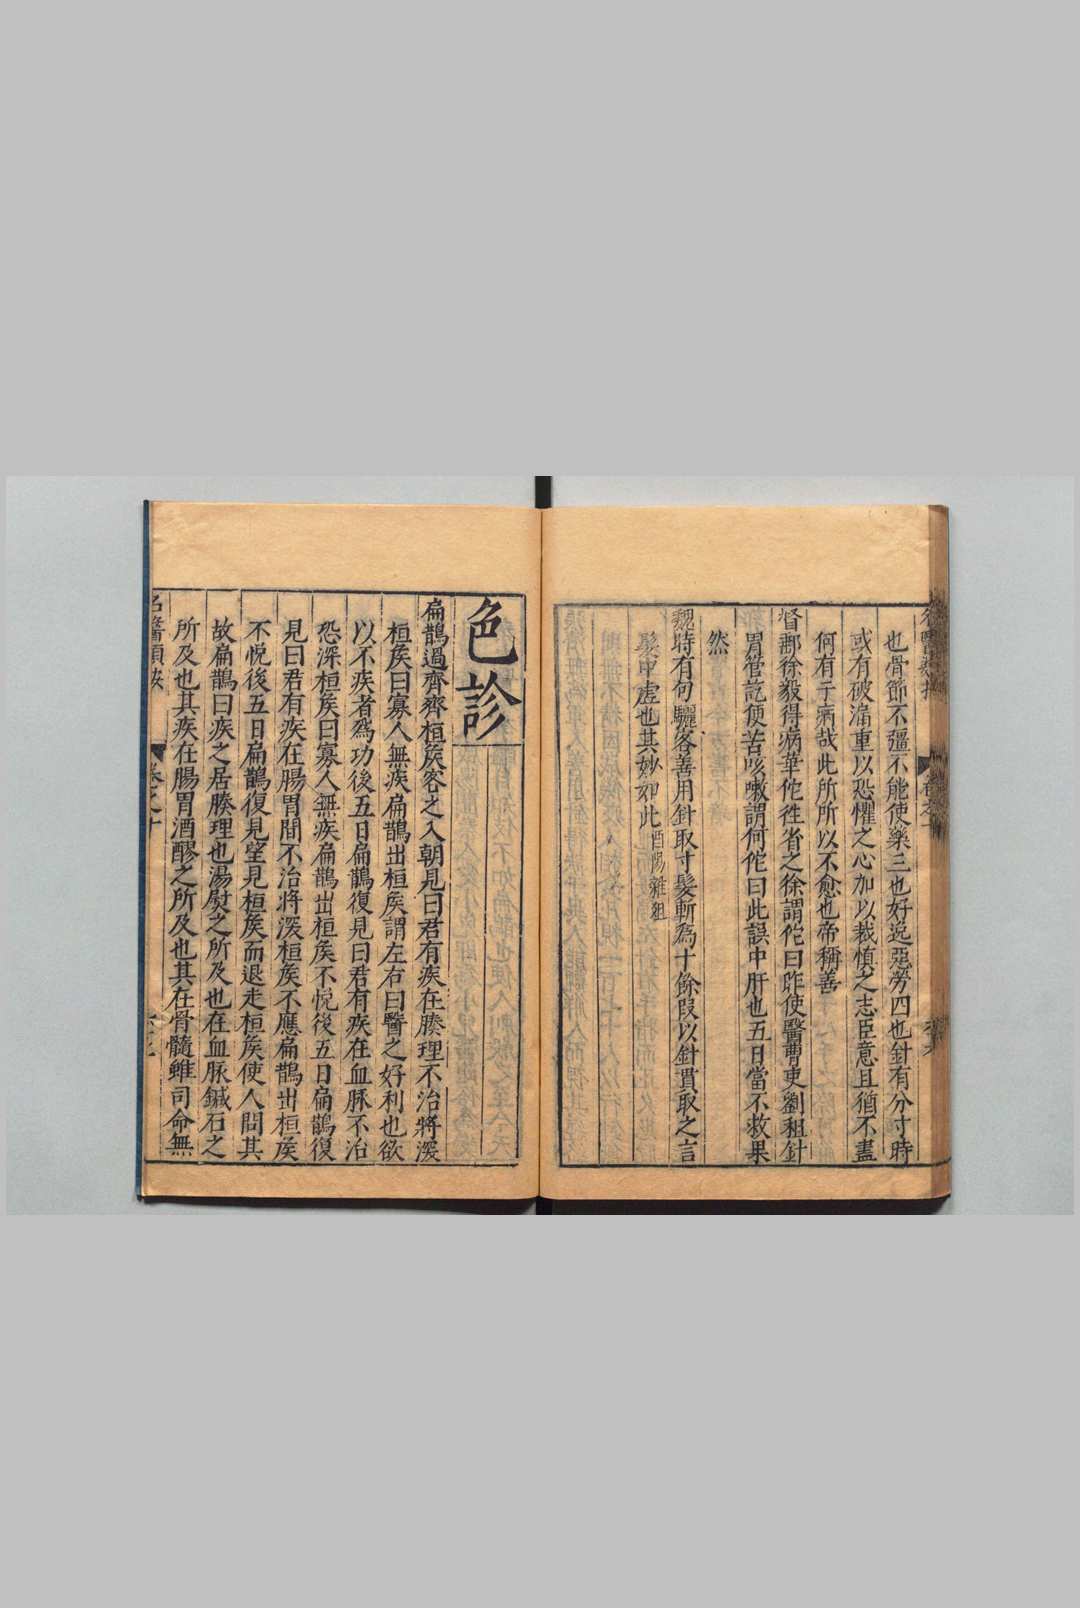 也骨節不彊不能使藥三也好逸惡勞四也針有分寸時
或有破漏重以恐懼之心加以裁慎之志臣意且猶不盡
何有于病哉此所所以不愈也帝稱善
督郵徐毅得病華佗徃省之徐謂佗曰昨使醫曹吏劉租針
胃管訖便苦咳嗽謂何佗曰此誤中肝也五日當不救果
然
魏時有句驪客善用針取寸髮斬爲十餘段以針貫取之言
髮中虗也其妙如此酉陽雜俎
色診
扁鵲過齊齊桓矦客之入朝見曰君有疾在腠理不治將深
桓矦曰寡人無疾扁鵲出桓矦謂左右曰醫之好利也欲
以不疾者爲功後五日扁鵲復見曰君有疾在血脈不治
恐深桓矦曰寡人無疾扁鵲出桓矦不悅後五日扁鵲復
見曰君有疾在腸胃間不治將深桓矦不應扁鵲出桓矦
不悅後五日扁鵲復見望見桓矦而退走桓矦使人問其
故扁鵲曰疾之居腠理也湯熨之所及也在血脈鍼石之
所及也其疾在腸胃酒醪之所及也其在骨髓雖司命無
名醫類案 卷之十